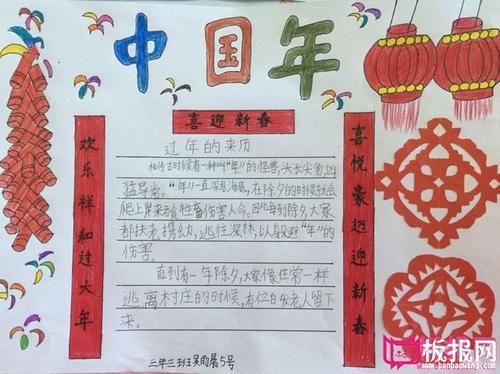 中国年
喜迎新春
欢乐祥和过大年
喜悦豪迈迎新春
过年的来历
相传古时候有一种叫"年"的怪兽,头长尖角,凶
猛异常。"年"一直深居海底,在除夕的时候就会
爬上岸来吞食牲畜伤害人命。因此每到除夕,大家
都扶老携幼,逃往深林,以躲避"年"的
伤害。
直到有一年除夕,大家像往常一样
逃离村庄的时候,有位白发老人留下
来。
三年三班吴雨晨5号
板报网
www.banbaowang.com